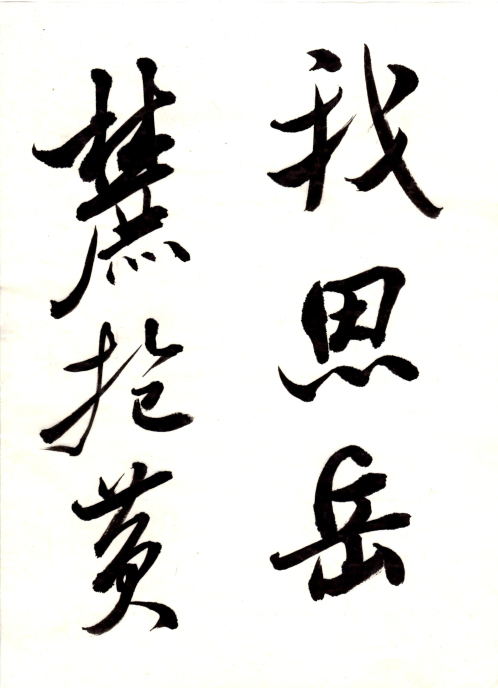 我思岳
麓抱黄